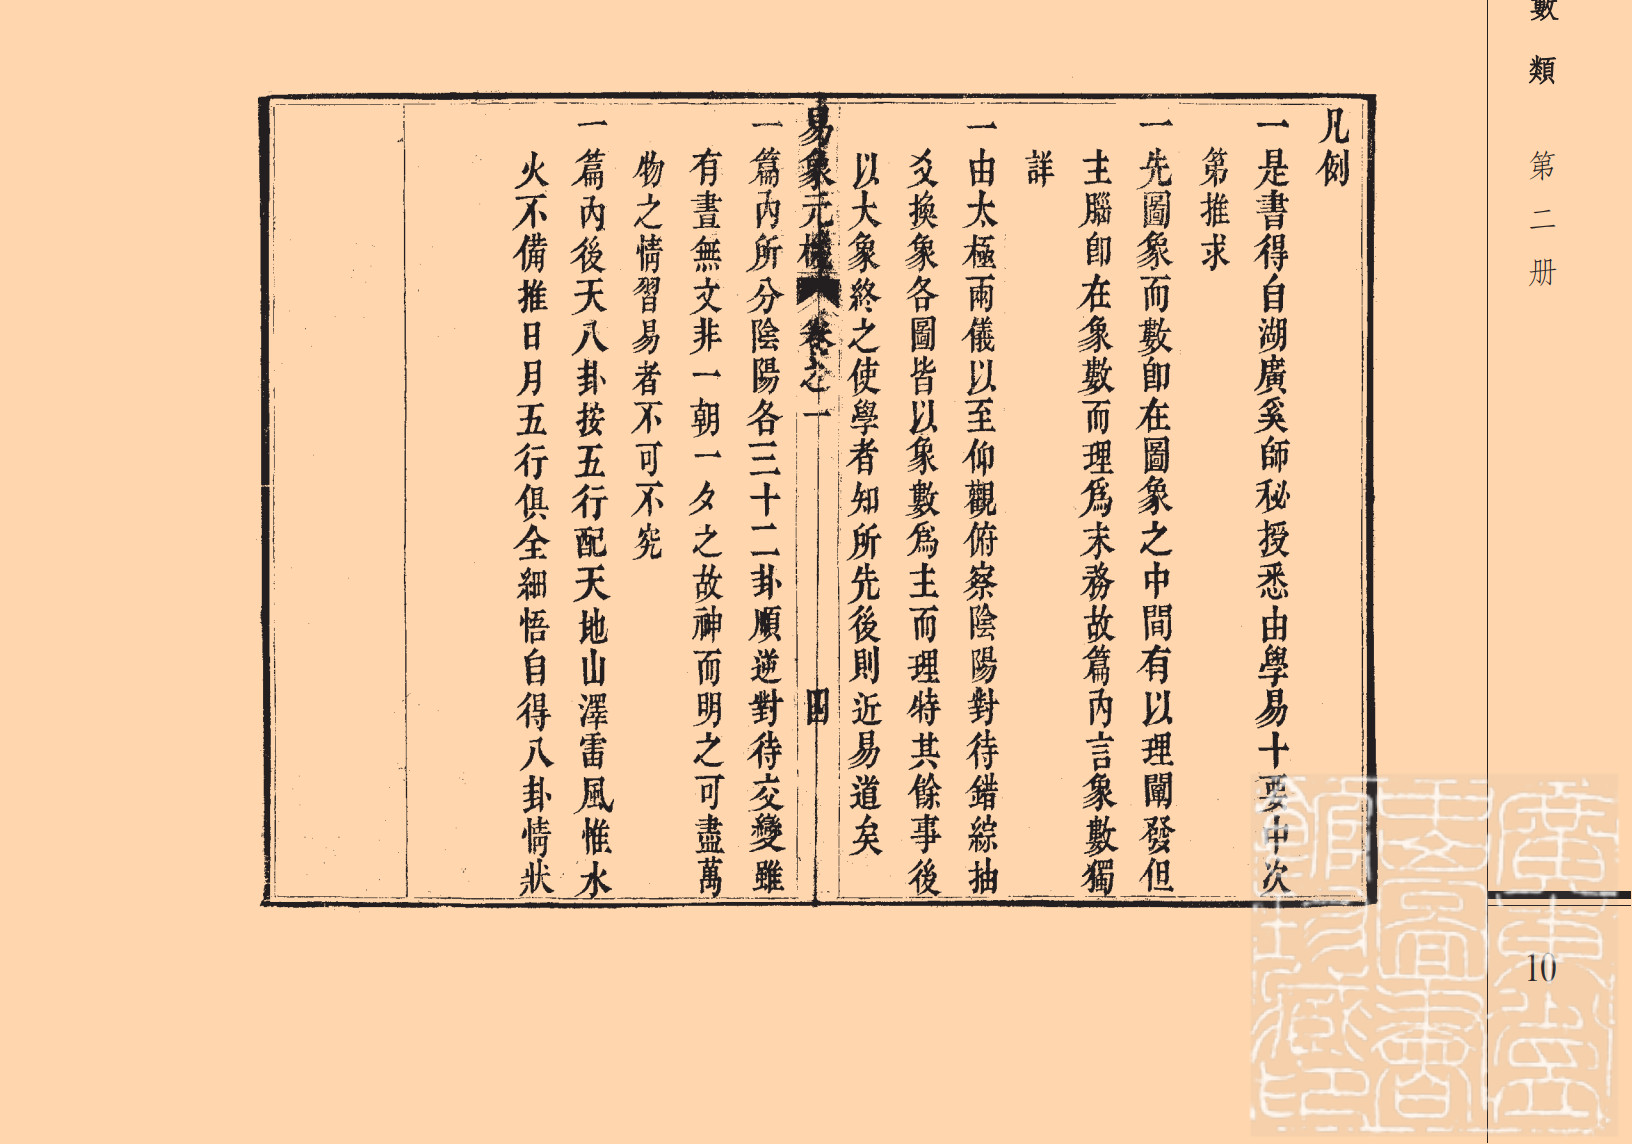 數類 第二册
凡例
一是書得自湖廣奚師秘授悉由學易十要中次
第推求
一先圖象而數卽在圖象之中間有以理闡發但
主腦卽在象數而理爲末務故篇內言象數獨
詳
一由太極兩儀以至仰觀俯察陰陽對待錯綜抽
爻換象各圖皆以象數爲主而理特其餘事後
以大象終之使學者知所先後則近易道矣
易象元機 卷之一 四
一篇內所分陰陽各三十二卦順逆對待交變雖
有晝無文非一朝一夕之故神而明之可盡萬
物之情習易者不可不究
一篇內後天八卦按五行配天地山澤雷風惟水
火不備推日月五行俱全細悟自得八卦情狀
10